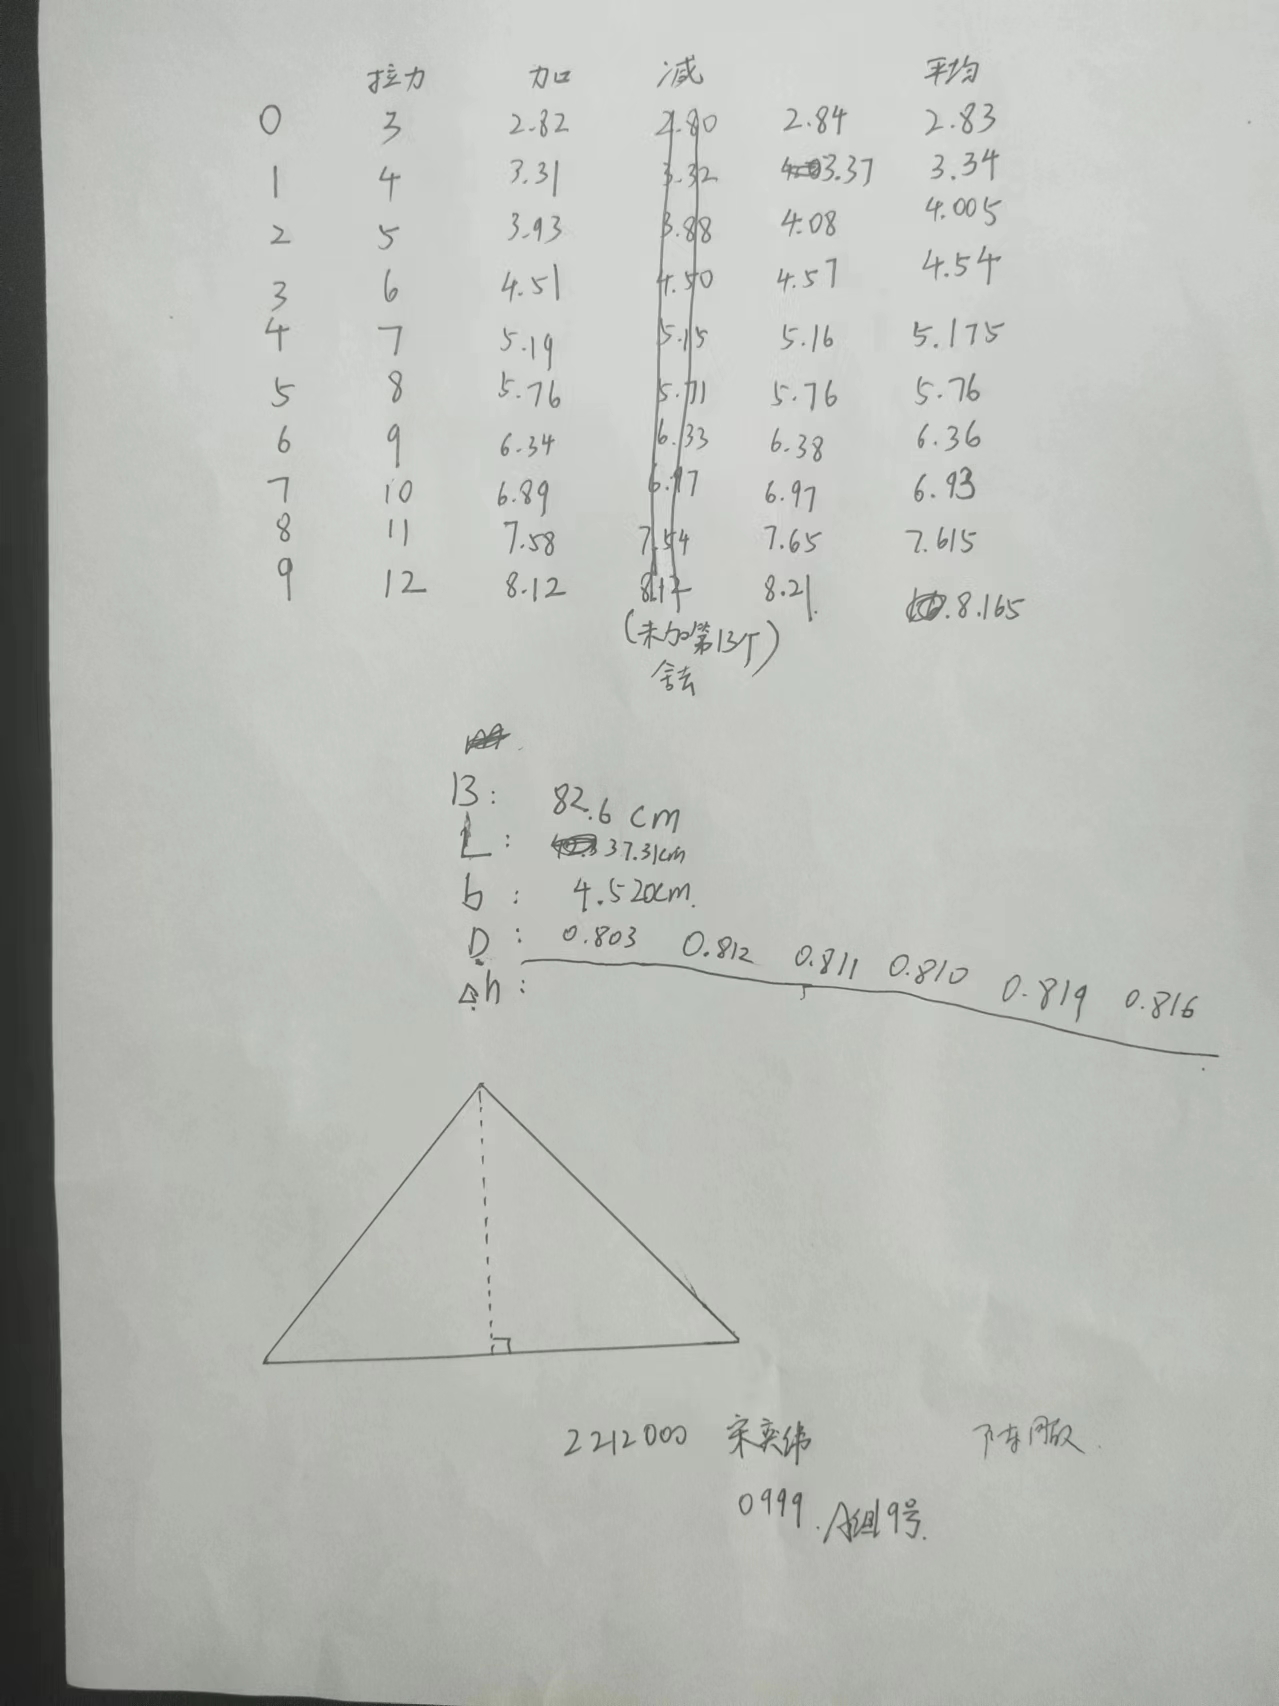 拉力 加 减 平均
0 3 2.82 2.80 2.84 2.83
1 4 3.31 3.32 3.37 3.34
2 5 3.93 3.88 4.08 4.005
3 6 4.51 4.50 4.57 4.54
4 7 5.19 5.15 5.16 5.175
5 8 5.76 5.71 5.76 5.76
6 9 6.34 6.33 6.38 6.36
7 10 6.89 6.97 6.97 6.93
8 11 7.58 7.54 7.65 7.615
9 12 8.12 8.17 8.21 8.165
(未加第13个)
舍去
B: 82.6 cm
L: 37.31cm
b: 4.520cm.
D: 0.803 0.812 0.811 0.810 0.819 0.816
Δh:
2212000 宋奕纬
0999. A组9号.